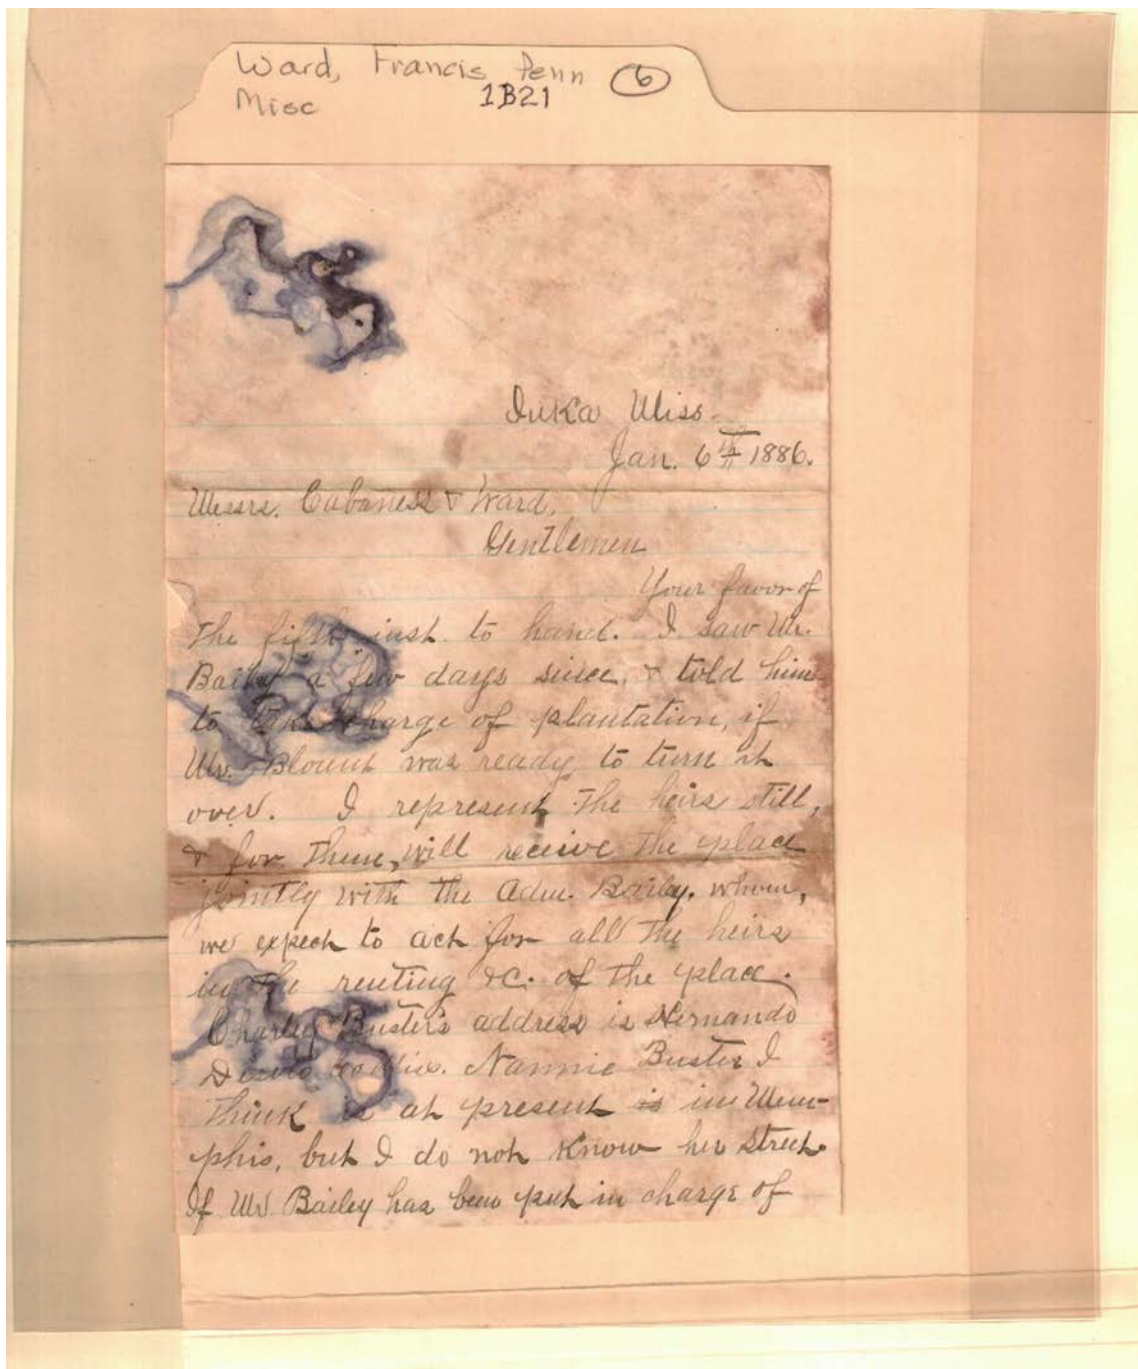 Ward, Francis Penn 6
Misc 1B21
Iuka Miss.
Jan. 6th 1886.
Messrs. Cabaness & Ward,
Gentlemen
Your favor of
the fifth inst to hand. I saw Mr.
Bailey a few days since, & told him
to take charge of plantation, if
Mr. Blount was ready to turn it
over. I represent the heirs still,
& for them, will receive the place
jointly with the Adm. Bailey, whom,
we expect to act for all the heirs
in the renting &c. of the place.
Charley Buster's address is Hernando
Desoto Miss. Nannie Buster I
think is at present is in Mem-
phis, but I do not know her street.
If Mr Bailey has been put in charge of